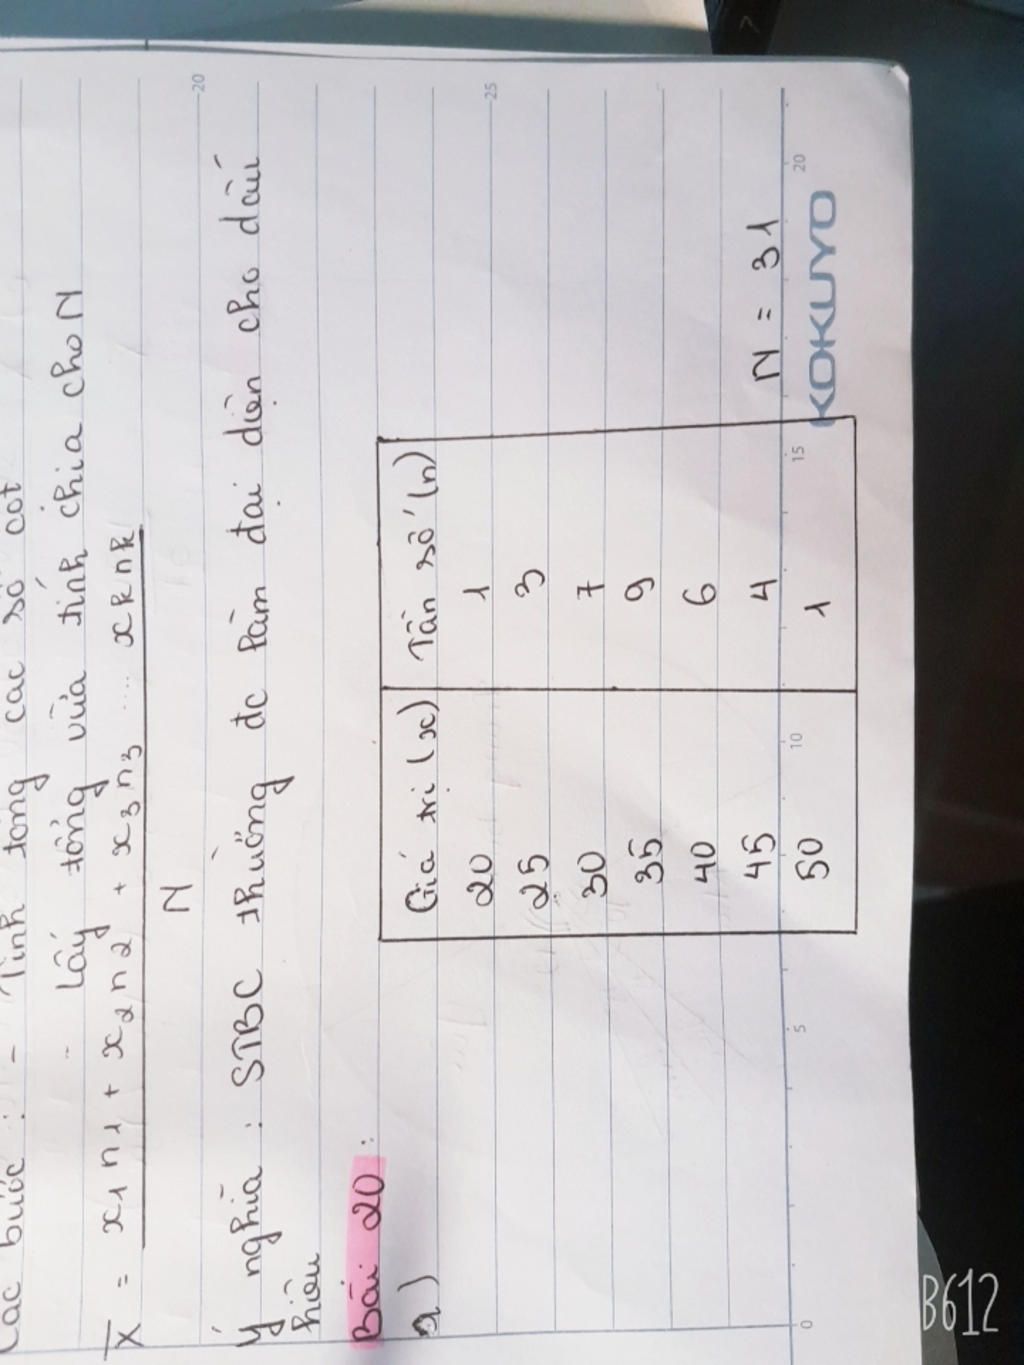 Các bước : - Tính tổng các số cot
- Lấy tổng vừa tính chia cho N
X = x1 n1 + x2 n2 + x3 n3 .... xk nk
N
Ý nghĩa : STBC thường đc làm đại diện cho dấu
hiệu
Bài 20 :
a)
Giá trị (x) Tần số (n)
20 1
25 3
30 7
35 9
40 6
45 4
50 1
N = 31
KOKUYO
20
25
0 5 10 15 20
B612